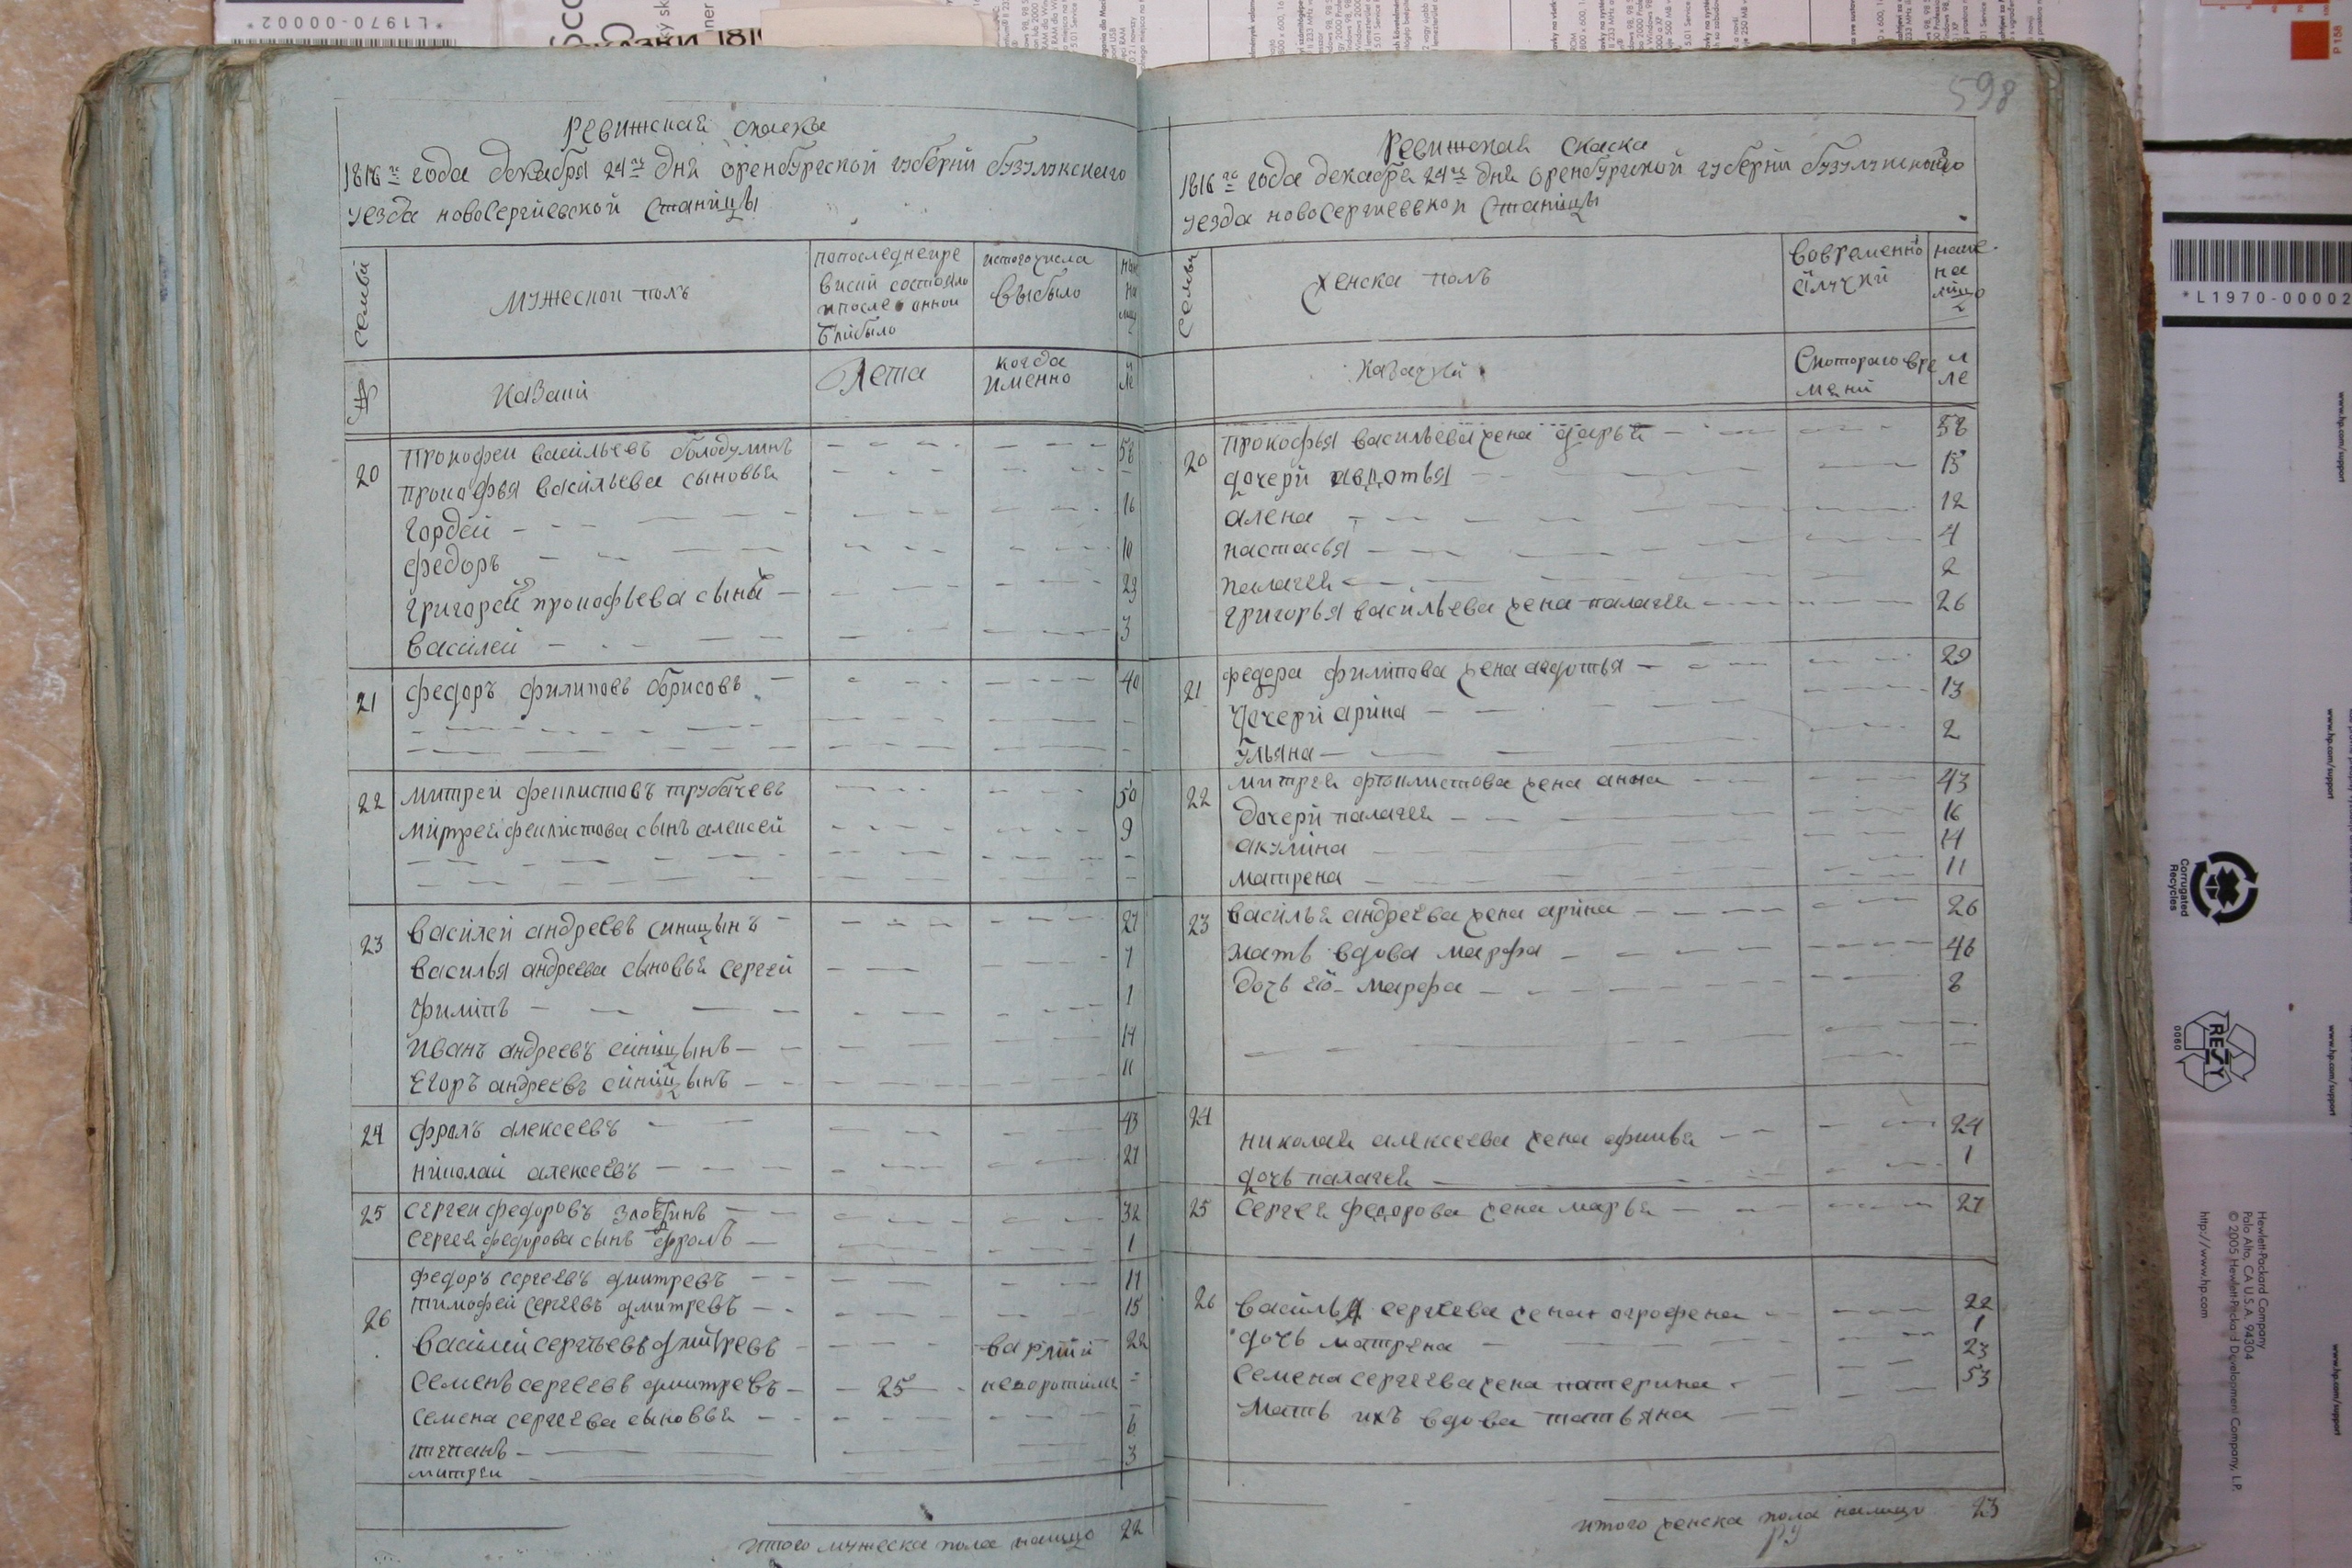 *L1970-00002*
598
Ревижская скаска
1816го года декабря 24го дня оренбургской губернии бузулукскаго
уезда новосергиевской станицы
семьи
мужеской полъ
попоследнейре
визий состояло
ипосле оннои
прибыло
истогочисла
выбыло
№
названи
Лета
когда
именно
ле
20
Прокофеи васильевъ болодулинъ
58
Прокофья васильева сыновья
гордей
16
федоръ
10
григорей прокофьева сына
29
василей
3
21
федоръ филиповъ борисовъ
40
22
митрей феклистовъ трубачевъ
50
митрей феклистова сынъ алексей
9
23
василей андреевъ синицынъ
27
василья андреева сыновья сергей
7
филипъ
1
иванъ андреевъ синицынъ
14
Егоръ андреевъ синицынъ
11
24
фролъ алексеевъ
43
николай алексеевъ
27
25
сергеи федоровъ злобинъ
32
сергея федорова сынъ фролъ
1
федоръ сергеевъ дмитревъ
11
26
тимофей сергеевъ дмитревъ
15
василей сергеевъ дмитревъ
22
семенъ сергеевъ дмитревъ
25
семена сергеева сыновья
6
степанъ
3
митреи
итого мужеска пола налицо 22
Ревижская скаска
1816го года декабря 24го дня оренбургской губернии бузулукскаго
уезда новосергиевской станицы
семьи
женска полъ
вовременно
йлучки
ныне
на
лицо
Скотораго вре
мени
ле
20
Прокофья васильева жена дарья
58
дочери авдотья
15
алена
12
настасья
4
палагея
2
григорья васильева жена палагея
26
21
федора филипова жена авдотья
29
дочери арина
13
ульяна
2
22
митрея феклистова жена анна
43
дочери палагея
16
акулина
14
матрена
11
23
василья андреева жена арина
26
мать вдова марфа
46
дочь ей марфа
8
24
николая алексеева жена афимья
24
дочь палагея
1
25
сергея федорова жена марья
27
26
василья сергеева жена огрофена
22
дочь матрена
1
семена сергеева жена катерина
23
мать ихъ вдова татьяна
53
итого женска пола налицо 23
*L1970-00002
Corrugated
Recycles
RESY
0060
Hewlett-Packard Company
Palo Alto, CA U.S.A. 94304
© 2005 Hewlett-Packard Development Company, L.P.
http://www.hp.com
www.hp.com/support
P 158